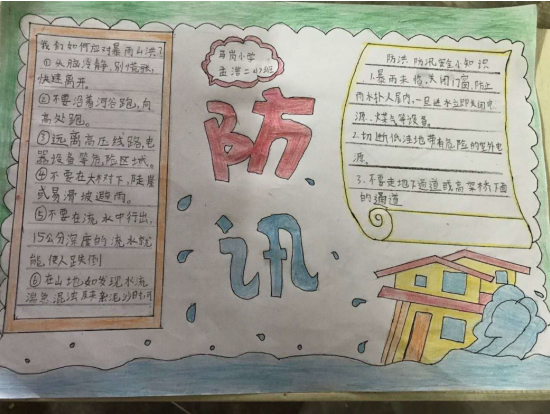 我们如何应对暴雨山洪?
①头脑冷静,别慌张,
快速离开。
②不要沿着河谷跑,向
高处跑。
③远离高压线路,电
器设备等危险区域。
④不要在大树下,陡崖
或易滑坡避雨。
⑤不要在流水中行走,
15公分深度的流水就
能使人跌倒
⑥在山地如发现水流
小学
二(1)班
防
讯
防洪防汛安全小知识
1.暴雨来临,关闭门窗,防止
雨水扑入屋内,一旦进水立即关闭电
源、煤气等设备。
2.切断低洼地带有危险的室外电
源。
3.不要走地下通道或高架桥下面
的通道